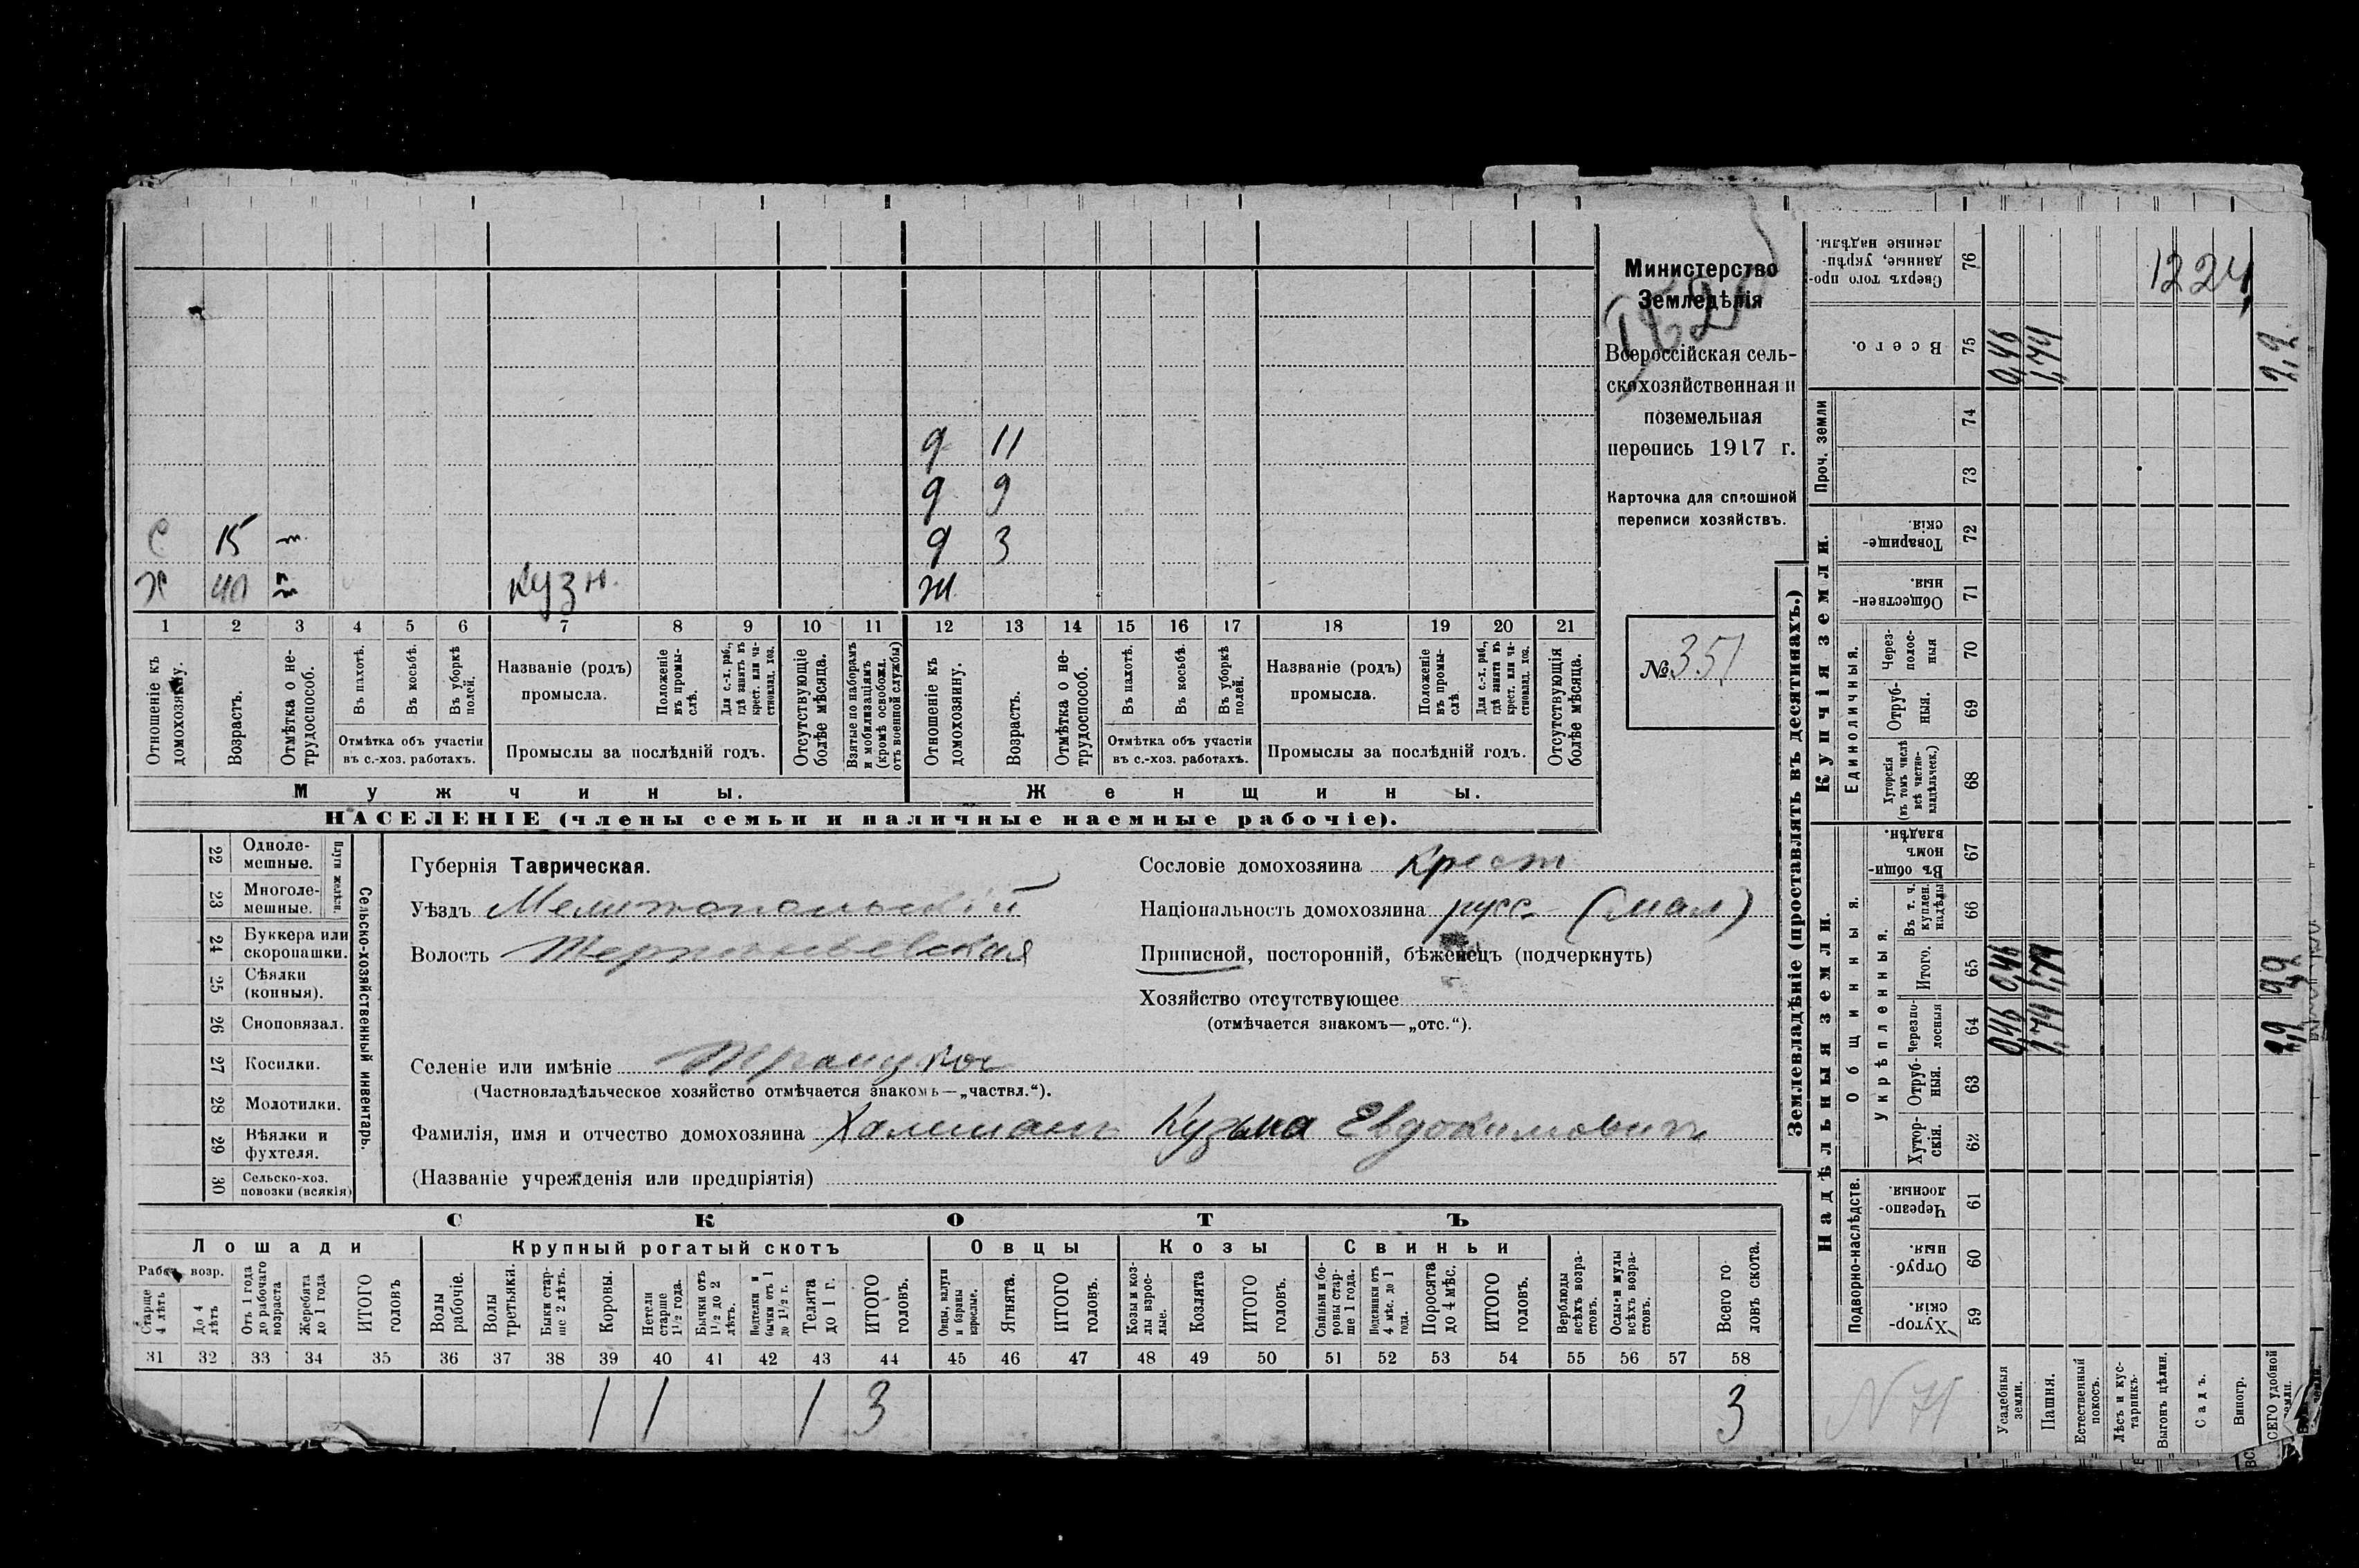 Министерство
Земледѣлія
Всероссійская сель-
скохозяйственная и
поземельная
перепись 1917 г.
Карточка для сплошной
переписи хозяйствъ.
№ 351
д 11
д 9
С 15 д 3
Х 40 кузн. ж
1 2 3 4 5 6 7 8 9 10 11 12 13 14 15 16 17 18 19 20 21
Отношеніе къ домохозяину.
Возрастъ.
Отмѣтка о не-трудоспособ.
Въ пахотѣ.
Въ косьбѣ.
Въ уборкѣ полей.
Отмѣтка объ участіи
въ с.-хоз. работахъ.
Названіе (родъ)
промысла.
Положеніе въ промы-слѣ.
Для с.-х. раб., гдѣ занятъ въ крест. или ча-стновлад. хоз.
Промыслы за послѣдній годъ.
Отсутствующіе болѣе мѣсяца.
Взятые по наборамъ и мобилизаціямъ (кромѣ освобожд. отъ военной службы)
Отношеніе къ домохозяину.
Возрастъ.
Отмѣтка о не-трудоспособ.
Въ пахотѣ.
Въ косьбѣ.
Въ уборкѣ полей.
Отмѣтка объ участіи
въ с.-хоз. работахъ.
Названіе (родъ)
промысла.
Положеніе въ промы-слѣ.
Для с.-х. раб., гдѣ занята въ крест. или ча-стновлад. хоз.
Промыслы за послѣдній годъ.
Отсутствующія болѣе мѣсяца.
Мужчины. Женщины.
НАСЕЛЕНІЕ (члены семьи и наличные наемные рабочіе).
Сельско-хозяйственный инвентарь.
Плуги желѣзн.
22 Одноле-мешные.
23 Многоле-мешные.
24 Буккера или скоропашки.
25 Сѣялки (конныя).
26 Сноповязал.
27 Косилки.
28 Молотилки.
29 Вѣялки и фухтеля.
30 Сельско-хоз. повозки (всякія)
Губернія Таврическая.
Уѣздъ Мелитопольскій
Волость Терпеньевская
Селеніе или имѣніе Троицкое
(Частновладѣльческое хозяйство отмѣчается знакомъ—„частвл.“).
Сословіе домохозяина Крест
Національность домохозяина русс (мал)
Приписной, посторонній, бѣженецъ (подчеркнуть)
Хозяйство отсутствующее
(отмѣчается знакомъ—„отс.“).
Фамилія, имя и отчество домохозяина Халиман Кузьма Евдокимовичъ
(Названіе учрежденія или предпріятія)
СКОТЪ
Лошади Крупный рогатый скотъ Овцы Козы Свиньи
Рабоч. возр.
Старше 4 лѣтъ
До 4 лѣтъ
Отъ 1 года до рабочаго возраста
Жеребята до 1 года
ИТОГО головъ
Волы рабочіе.
Волы третьяки.
Быки стар-ше 2 лѣтъ.
Коровы.
Нетели старше 1 1/2 года.
Бычки отъ 1 1/2 до 2 лѣтъ.
Подтелки и бычки отъ 1 до 1 1/2 г.
Телята до 1 г.
ИТОГО головъ.
Овцы, валухи и бараны взрослые.
Ягнята.
ИТОГО головъ.
Козы и коз-лы взрос-лые.
Козлята
ИТОГО головъ.
Свиньи и бо-ровы стар-ше 1 года.
Подсвинки отъ 4 мѣс. до 1 года.
Поросята до 4 мѣс.
ИТОГО головъ.
Верблюды всѣхъ возра-стовъ.
Ослы и мулы всѣхъ возра-стовъ.
Всего го-ловъ скота.
31 32 33 34 35 36 37 38 39 40 41 42 43 44 45 46 47 48 49 50 51 52 53 54 55 56 57 58
1 1 1 3 3
Землевладѣніе (проставлять въ десятинахъ.)
Надѣльныя земли. Купчія земли. Проч. земли
Подворно-наслѣдств.
Общинныя.
Укрѣпленныя.
Единоличныя.
59 Хутор-скія.
60 Отруб-ныя.
61 Черезпо-лосныя.
62 Хутор-скія.
63 Отруб-ныя.
64 Черезпо-лосныя
65 Итого.
66 Въ т. ч. куплен. надѣлы
67 Въ общи-номъ владѣн.
68 Хуторскія (въ томъ числѣ всѣ частно-владѣльческ.)
69 Отруб-ныя.
70 Через-полос-ныя
71 Обществен-ныя.
72 Товарище-скія.
73
74
75 Всего.
76 Сверхъ того про-данные, укрѣп-ленные надѣлы.
Усадебныя земли. 0,46 0,46 0,46
Пашня. 1,74 1,74 1,74
Естественный покосъ.
Лѣсъ и кус-тарникъ.
Выгонъ цѣлин.
Садъ.
Виногр.
2,2 2,2 2,2
1224
N 71